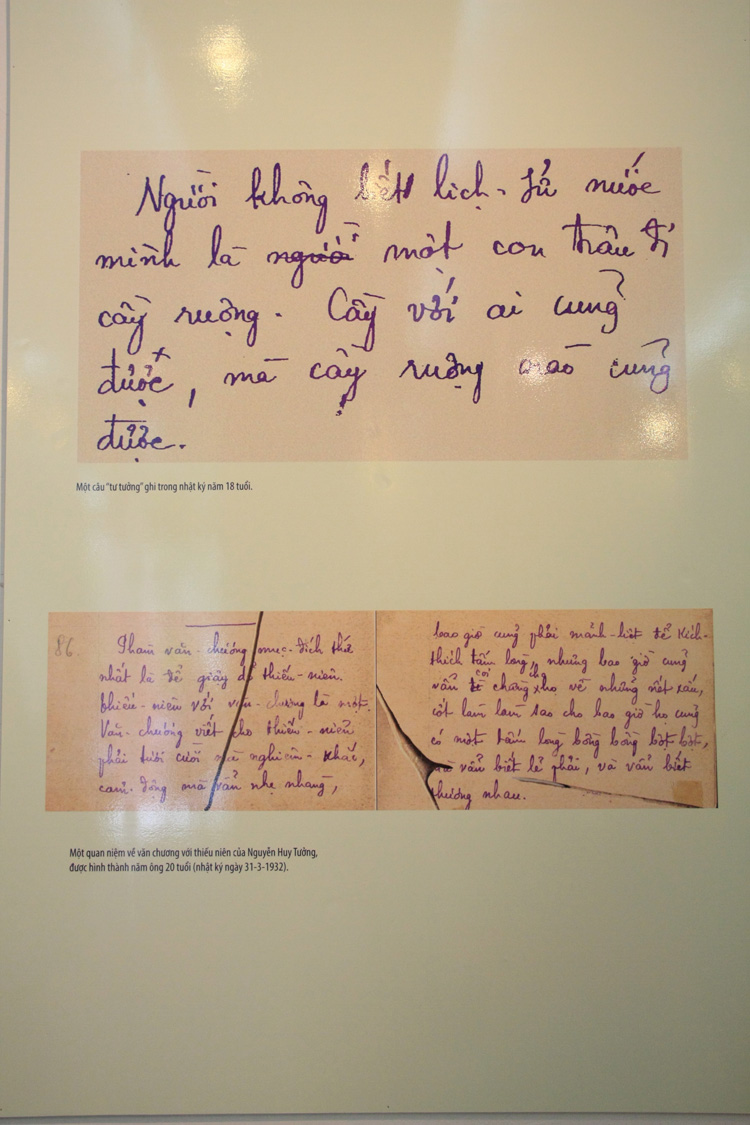 Người không biết lịch-sử nước
mình là người một con trâu đi
cầy ruộng. Cầy với ai cũng
được, mà cầy ruộng nào cũng
được.
Một câu "tư tưởng" ghi trong nhật ký năm 18 tuổi.
86
Phàm văn-chương mục-đích thứ
nhất là để giậy dỗ thiếu-niên.
thiếu-niên với văn-chương là một.
Văn-chương viết cho thiếu-niên
phải tươi cười mà nghiêm-khắc,
cảm-động mà vẫn nhẹ nhàng,
bao giờ cũng phải mãnh-liệt để kích-
thích tấm lòng, nhưng bao giờ cũng
vẫn coi chừng cho họ về những nết xấu,
cốt làm làm sao cho bao giờ họ cũng
có một tấm lòng bồng bồng bột bột,
mà vẫn biết lẽ phải, và vẫn biết
thương nhau.
Một quan niệm về văn chương với thiếu niên của Nguyễn Huy Tưởng,
được hình thành năm ông 20 tuổi (nhật ký ngày 31-3-1932).